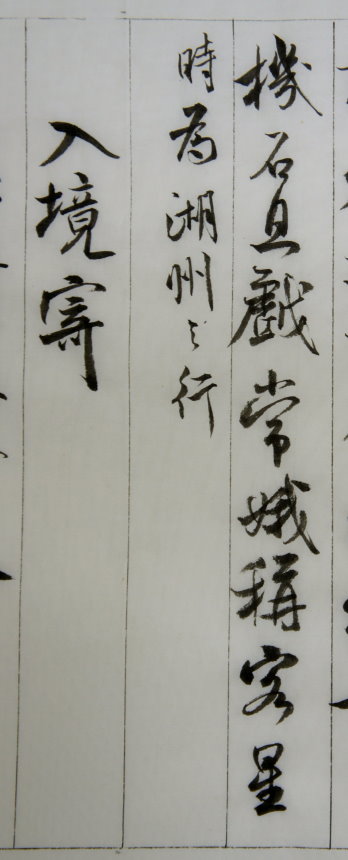 機石且戲常娥稱客星
時為湖州之行
入境寄